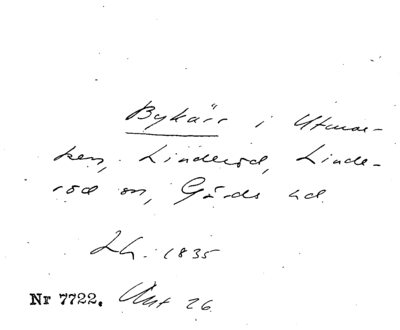 Bykärr i Utmar-
ken, Linderöd, Linde-
röd sn, Gärds hd
Lh. 1835
Nr 7722. Akt 26